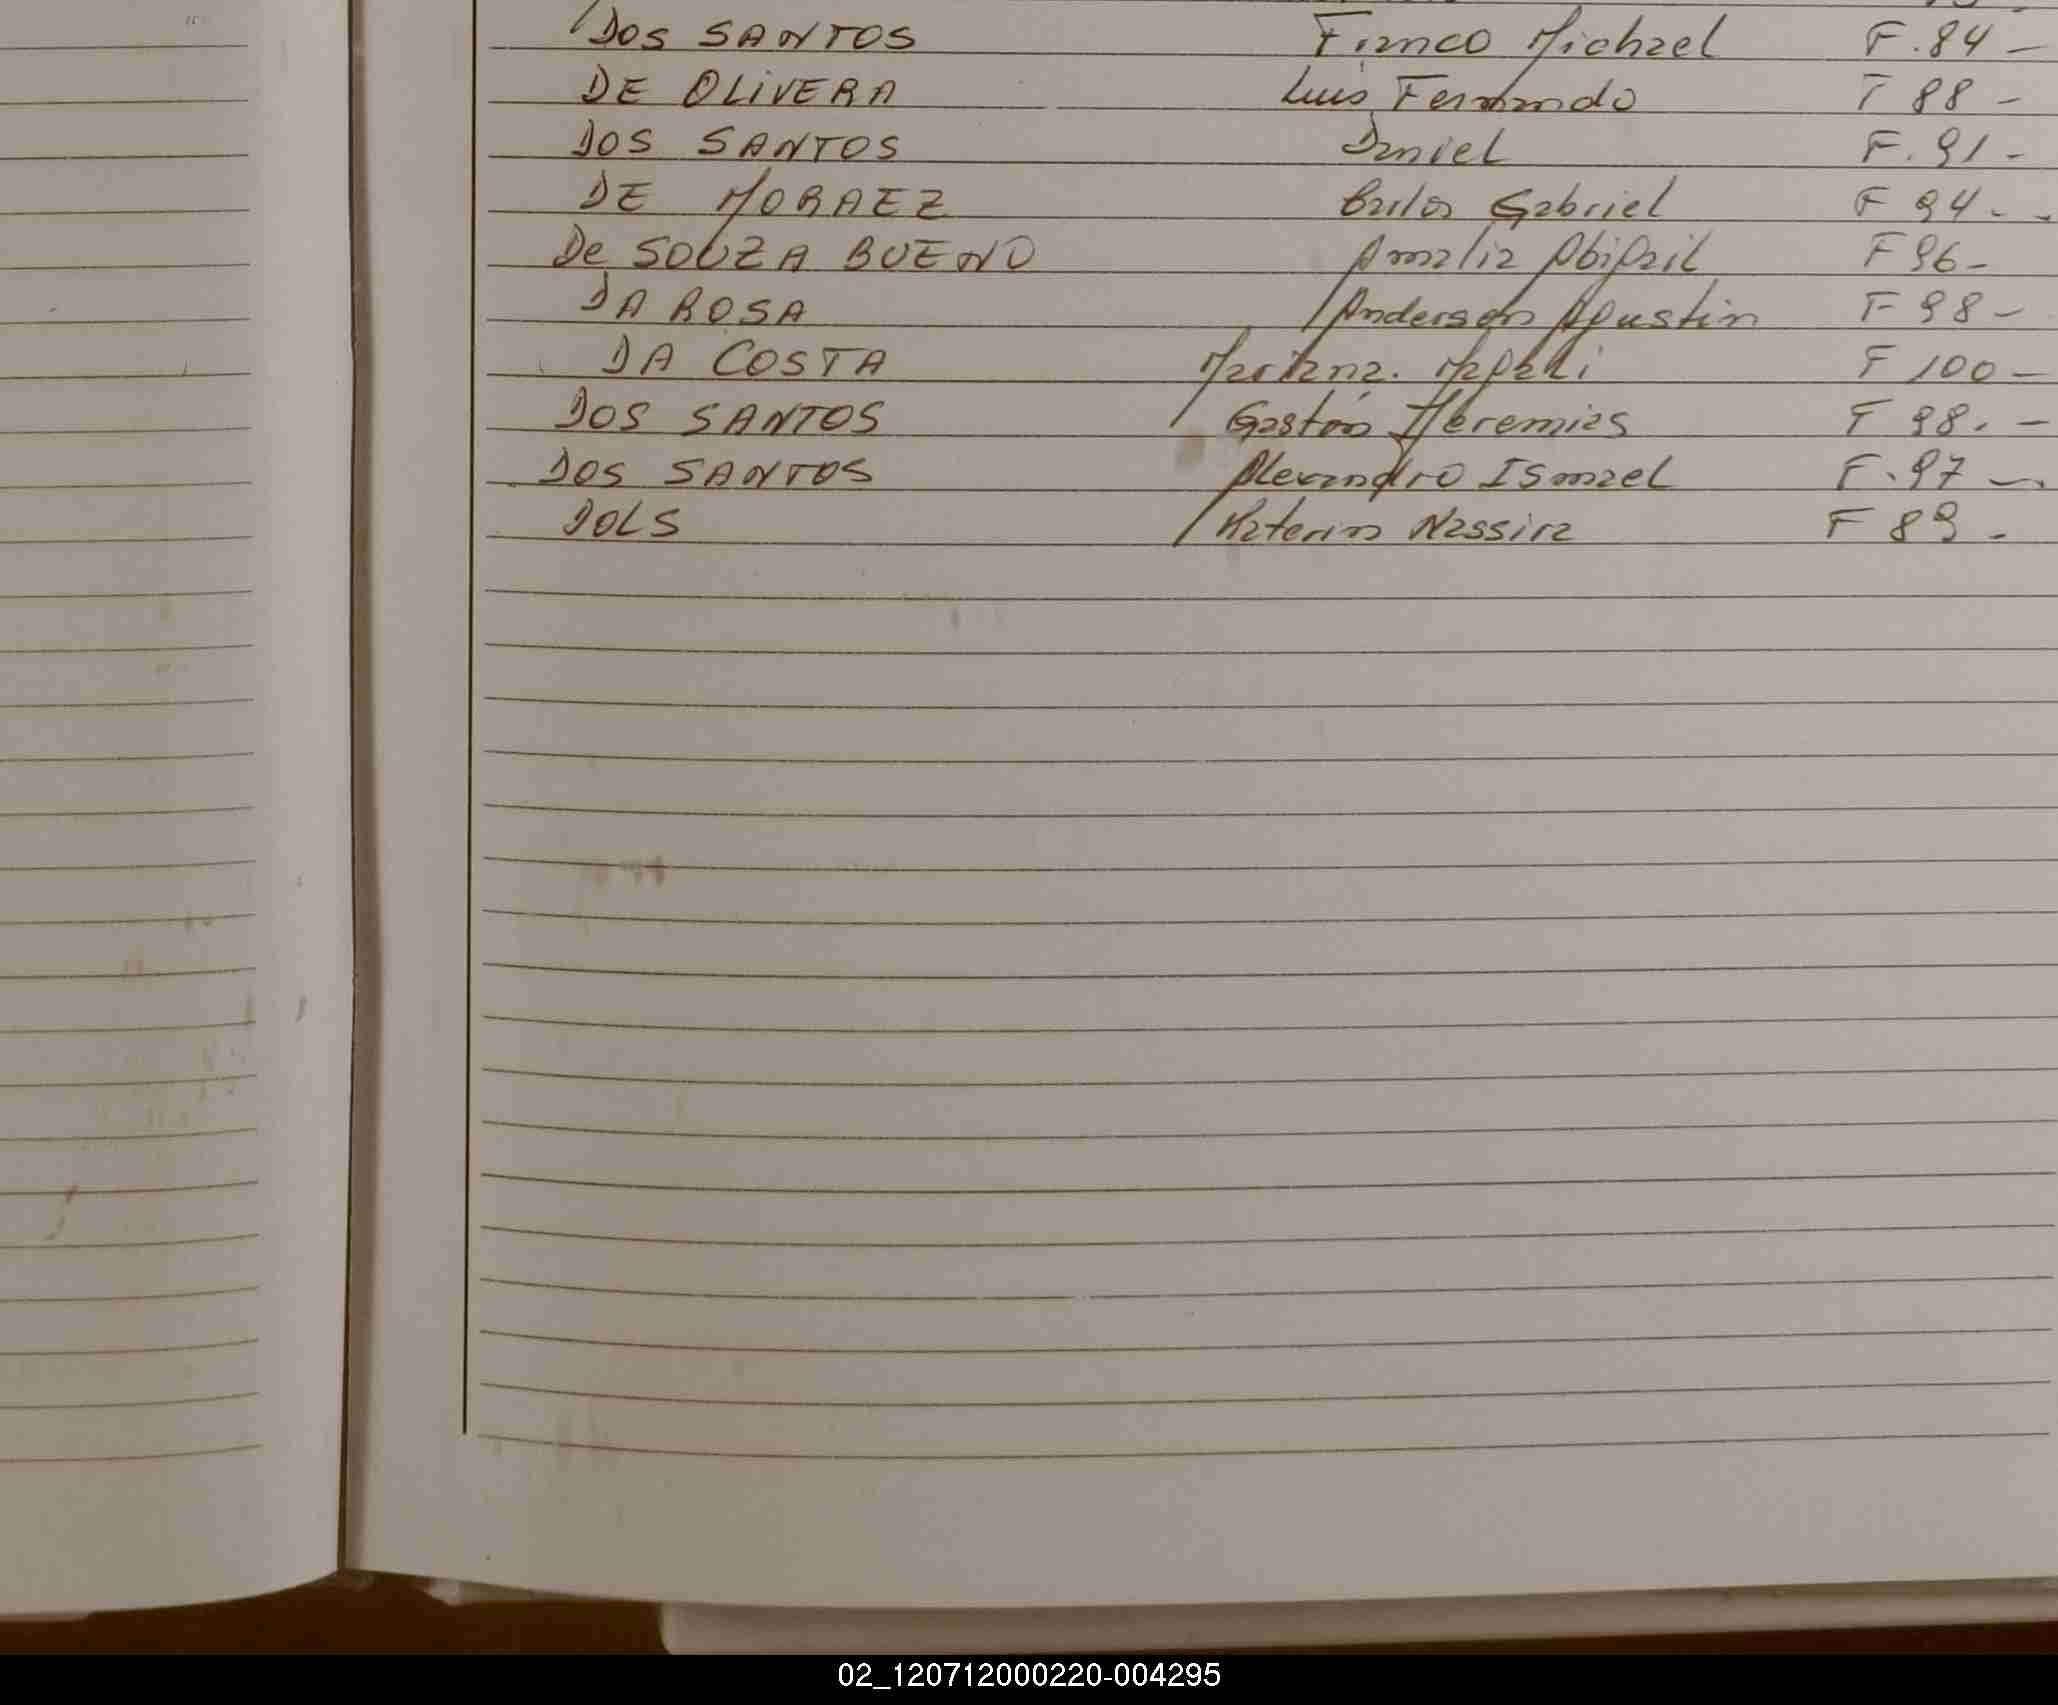 DOS SANTOS Franco Michael F.84 -
DE OLIVERA Luis Fernando F 88 -
DOS SANTOS Daniel F. 91 -
DE MORAEZ Carlos Gabriel F 94 - -
De SOUZA BUENO Amalia Abigail F 96 -
DA ROSA Anderson Agustin F 98 -
DA COSTA Mariana. Magali F 100 -
DOS SANTOS Gastón Heremias F 98. -
DOS SANTOS Alexandro Ismael F. 97 -.
DOLS Katerin Nassira F 89 -
02_120712000220-004295